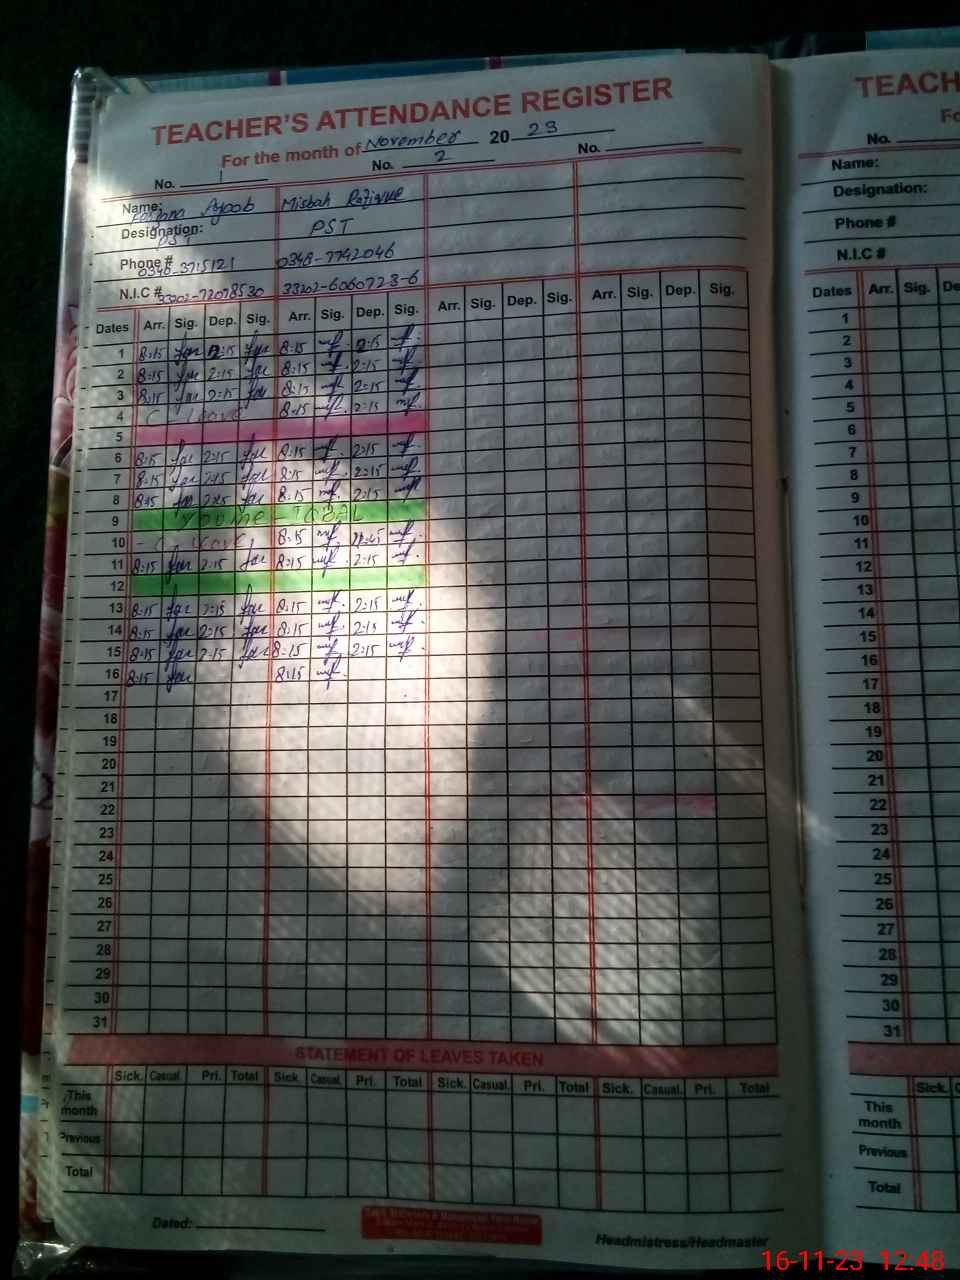 TEACHER'S ATTENDANCE REGISTER
For the month of November 2023
No. 1 No. 2 No.
Name: Ayoob Misbah Rafique
Designation: PST PST
Phone # 0346-3715121 0348-7742046
N.I.C # 33202-6060723-6
Dates Arr. Sig. Dep. Sig. Arr. Sig. Dep. Sig. Arr. Sig. Dep. Sig. Arr. Sig. Dep. Sig.
1 8:15 2:15 8:15 mf. 2:15 mf.
2 8:15 2:15 8:15 mf. 2:15 mf.
3 8:15 2:15 8:15 mf. 2:15 mf.
4 C - Leave 8:15 mf. 2:15 mf.
5
6 8:15 2:15 8:15 mf. 2:15 mf.
7 8:15 2:15 8:15 mf. 2:15 mf.
8 8:15 2:15 8:15 mf. 2:15 mf.
9 IQBAL
10 - C. Leave, 8:15 mf. mf.
11 8:15 2:15 8:15 mf. 2:15 mf.
12
13 8:15 2:15 8:15 mf. 2:15 mf.
14 8:15 2:15 8:15 mf. 2:15 mf.
15 8:15 2:15 8:15 mf. 2:15 mf.
16 8:15 8:15 mf.
17
18
19
20
21
22
23
24
25
26
27
28
29
30
31
STATEMENT OF LEAVES TAKEN
Sick. Casual. Pri. Total Sick. Casual. Pri. Total Sick. Casual. Pri. Total Sick. Casual. Pri. Total
This month
Previous
Total
Dated:
Headmistress/Headmaster
TEACH
Fo
No.
Name:
Designation:
Phone #
N.I.C #
Dates Arr. Sig. De
1
2
3
4
5
6
7
8
9
10
11
12
13
14
15
16
17
18
19
20
21
22
23
24
25
26
27
28
29
30
31
Sick. C
This month
Previous
Total
16-11-23 12:48